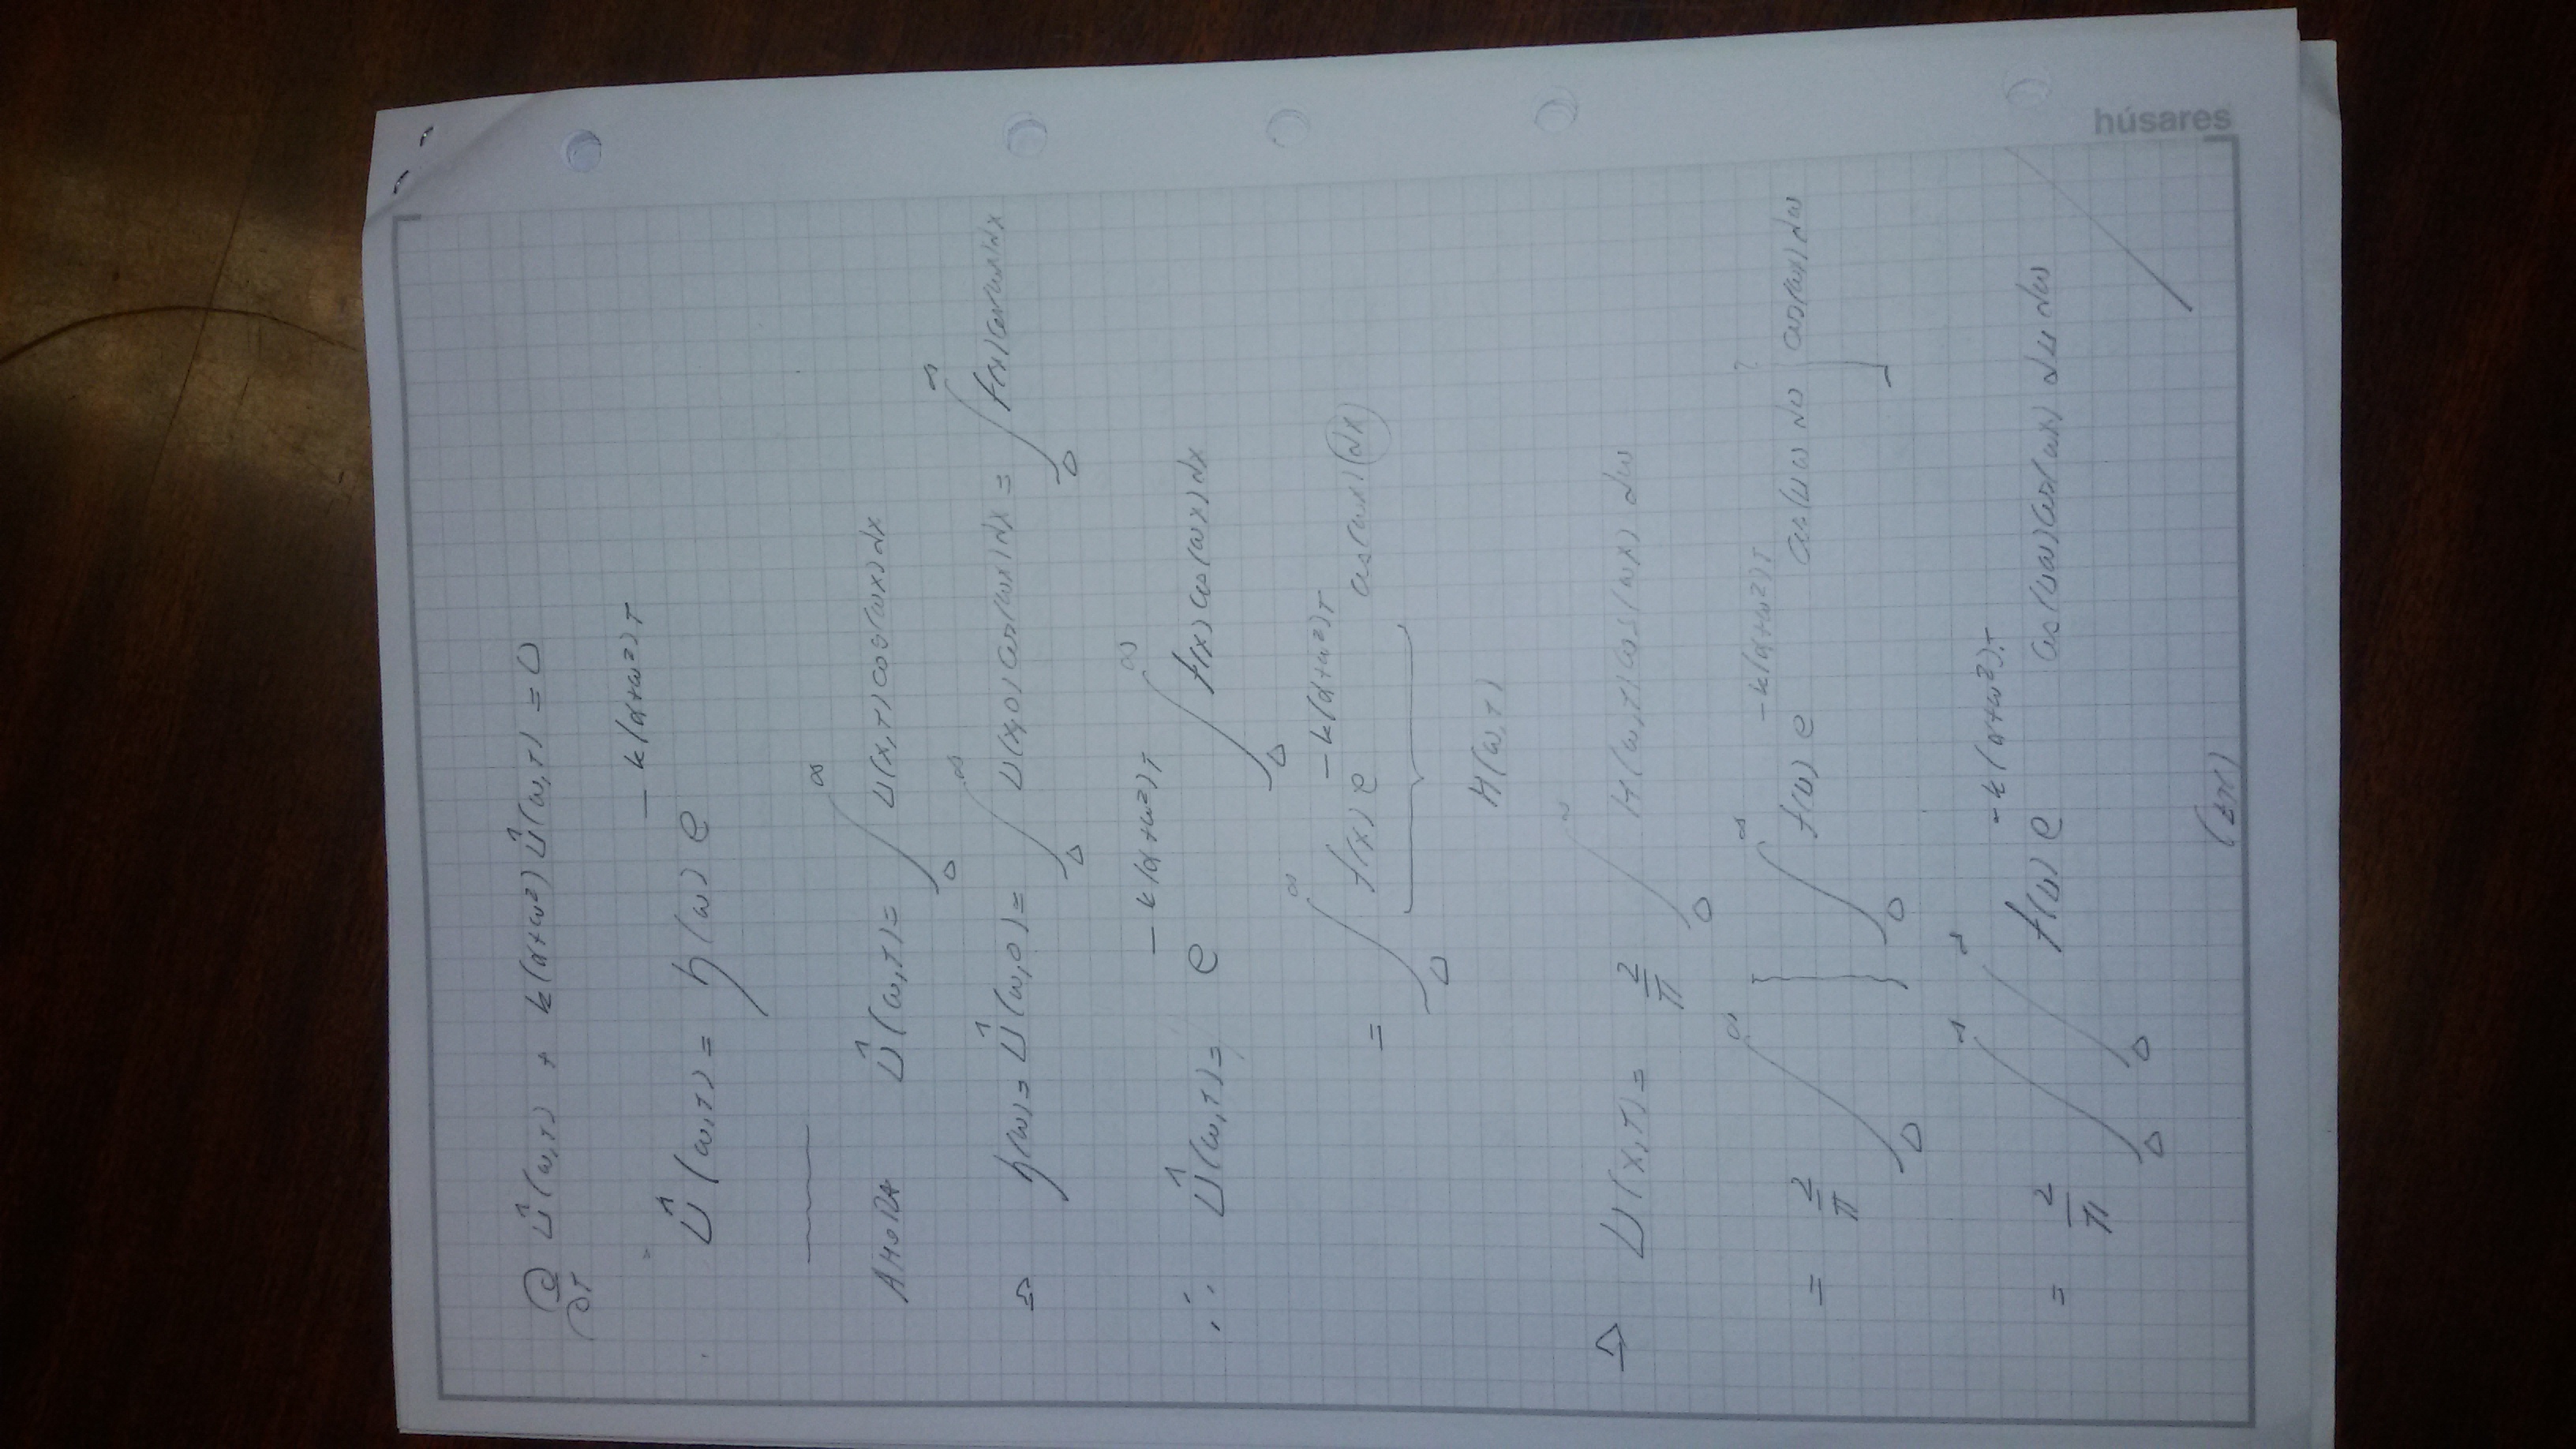 húsares
∂/∂T Û(ω,T) + k(α+ω²)Û(ω,T) = 0
Û(ω,T) = h(ω) e^{-k(α+ω²)T}
AHORA Û(ω,T) = ∫_0^∞ U(x,T) cos(ωx) dx
⇒ h(ω) = Û(ω,0) = ∫_0^∞ U(x,0) cos(ωx) dx = ∫_0^∞ f(x) cos(ωx) dx
∴ Û(ω,T) = e^{-k(α+ω²)T} ∫_0^∞ f(x) cos(ωx) dx
= ∫_0^∞ f(x) e^{-k(α+ω²)T} cos(ωx) dx
H(ω,T)
⇒ U(x,T) = 2/π ∫_0^∞ H(ω,T) cos(ωx) dω
= 2/π ∫_0^∞ { ∫_0^∞ f(u) e^{-k(α+ω²)T} cos(uω du } cos(ωx) dω
= 2/π ∫_0^∞ ∫_0^∞ f(u) e^{-k(α+ω²)T} cos(uω) cos(ωx) du dω